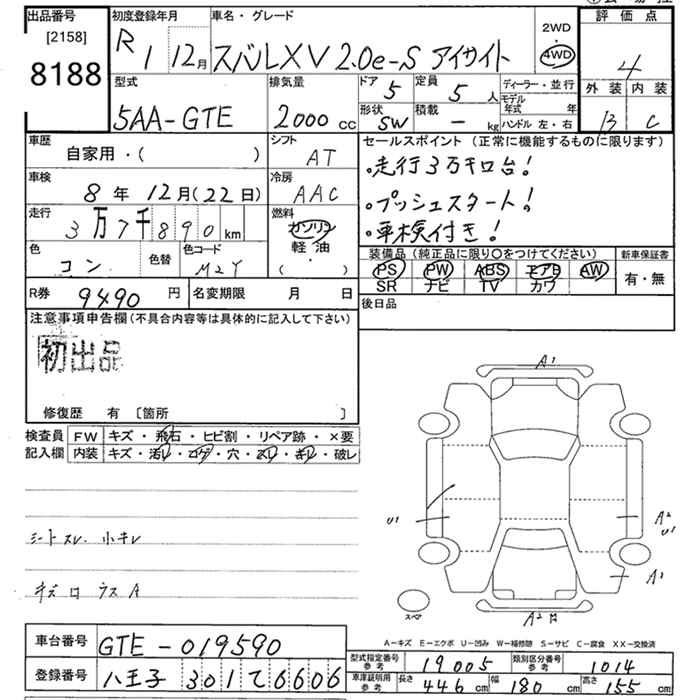 出品番号 初度登録年月 車名・グレード 評価点
[2158]
8188
R 1 12月 スバルXV 2.0e-S アイサイト 2WD 4WD 4
型式 排気量 ドア 定員 ディーラー・並行 外装 内装
5AA-GTE 2000 cc 5 5 人 モデル年式 年
形状 積載 ハンドル 左・右 B C
SW - kg
車歴 シフト セールスポイント(正常に機能するものに限ります)
自家用・( ) AT ・走行3万キロ台!
車検 冷房 ・プッシュスタート!
8年 12月(22日) AAC ・車検付き!
走行 燃料
3万7千890km ガソリン
軽油・
( )
色 色替 色コード
コン M2Y
装備品(純正品に限り○をつけてください) 新車保証書
PS PW ABS エアB AW 有・無
SR ナビ TV カワ
R券 9490円 名変期限 月 日 後日品
注意事項申告欄(不具合内容等は具体的に記入して下さい)
初出品
修復歴 有 [箇所 ]
検査員 FW キズ・飛石・ヒビ割・リペア跡・×要
記入欄 内装 キズ・汚レ・コゲ・穴・スレ・キレ・破レ
シートスレ・小キレ
A1
U1
A2
U1
A1
スペア
A2
A-キズ E-エクボ U-凹み W-補修跡 S-サビ C-腐食 XX-交換済
車台番号 GTE-019590
登録番号 八王子 301 て 6606
型式指定番号 参考 19005 類別区分番号 参考 1014
車庫証明用 参考 長さ 446cm 幅 180cm 高さ 155cm